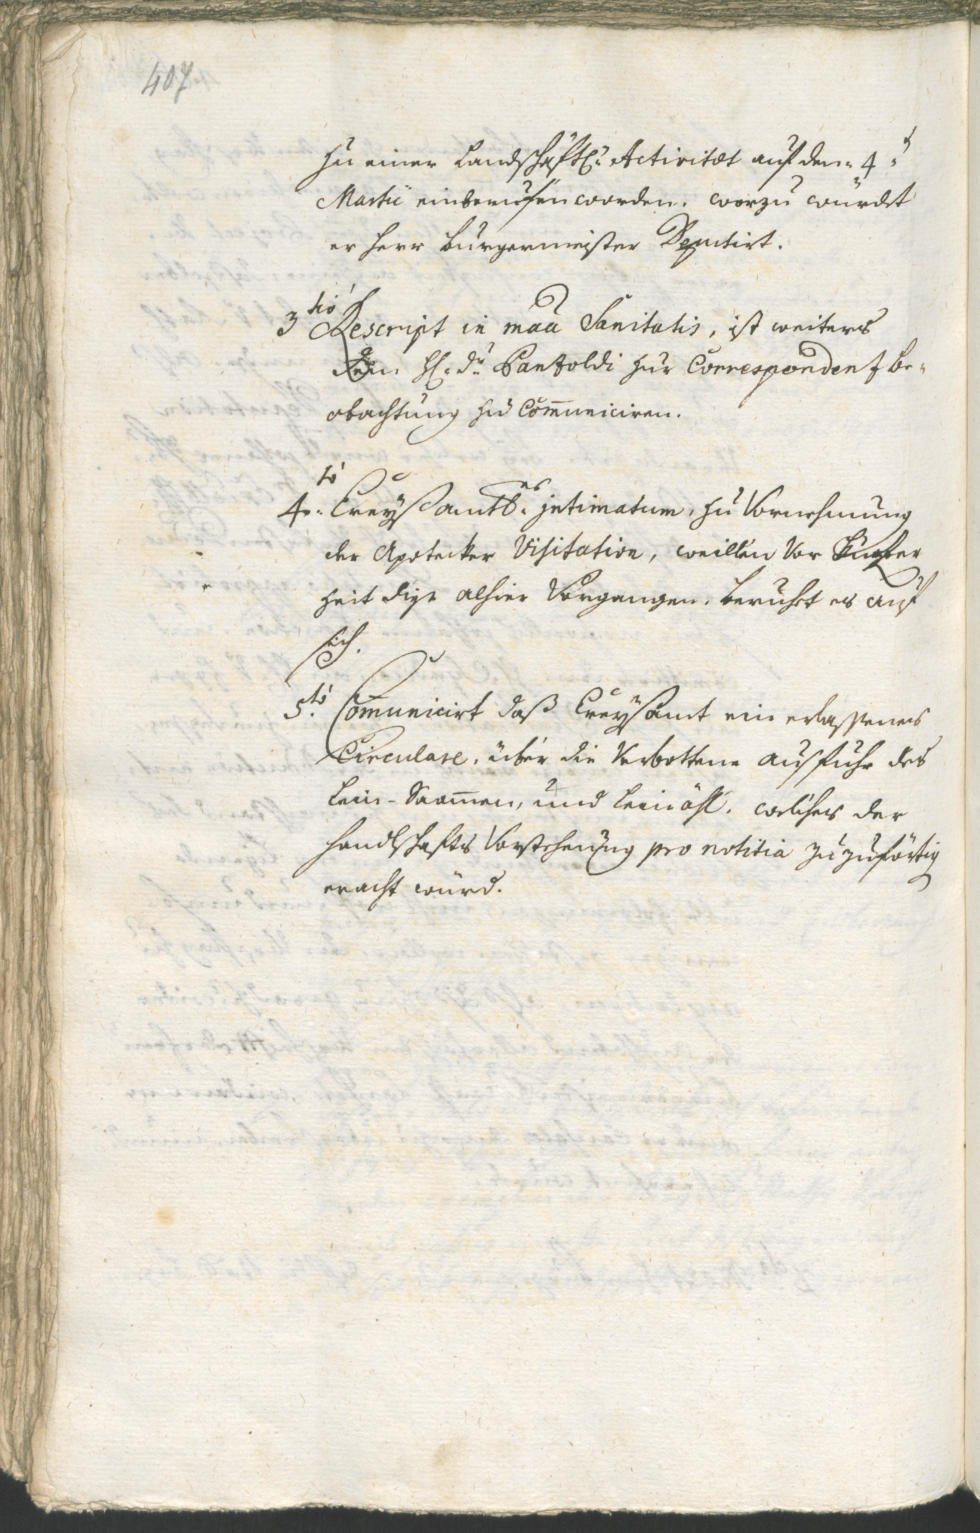 407
zu einer Landschäftl: Activitæt auf den 4ᵗ
Martii einberuffen worden. worzu würdet
er herr burgermeister Deputirt.
3tio Rescript in maã Sanitatis, ist weiters
dem H: Dr Panzoldi zur Correspondenz be-
obachtung zu Com̃uniciren.
4to Creyßambts intimatum, zu Vornehmung
der Apotecker Visitation, weillen vor kurzer
zeit dise alhier vorgangen. beruhet es auf
sich.
5to Com̃unicirt daß Creysamt ein erlassenes
Circulare, über die verbottene ausfuhr des
Lein-Saam̃en, und leinöhl. welches der
handlschafts vorstehung pro notitia
eracht würd.